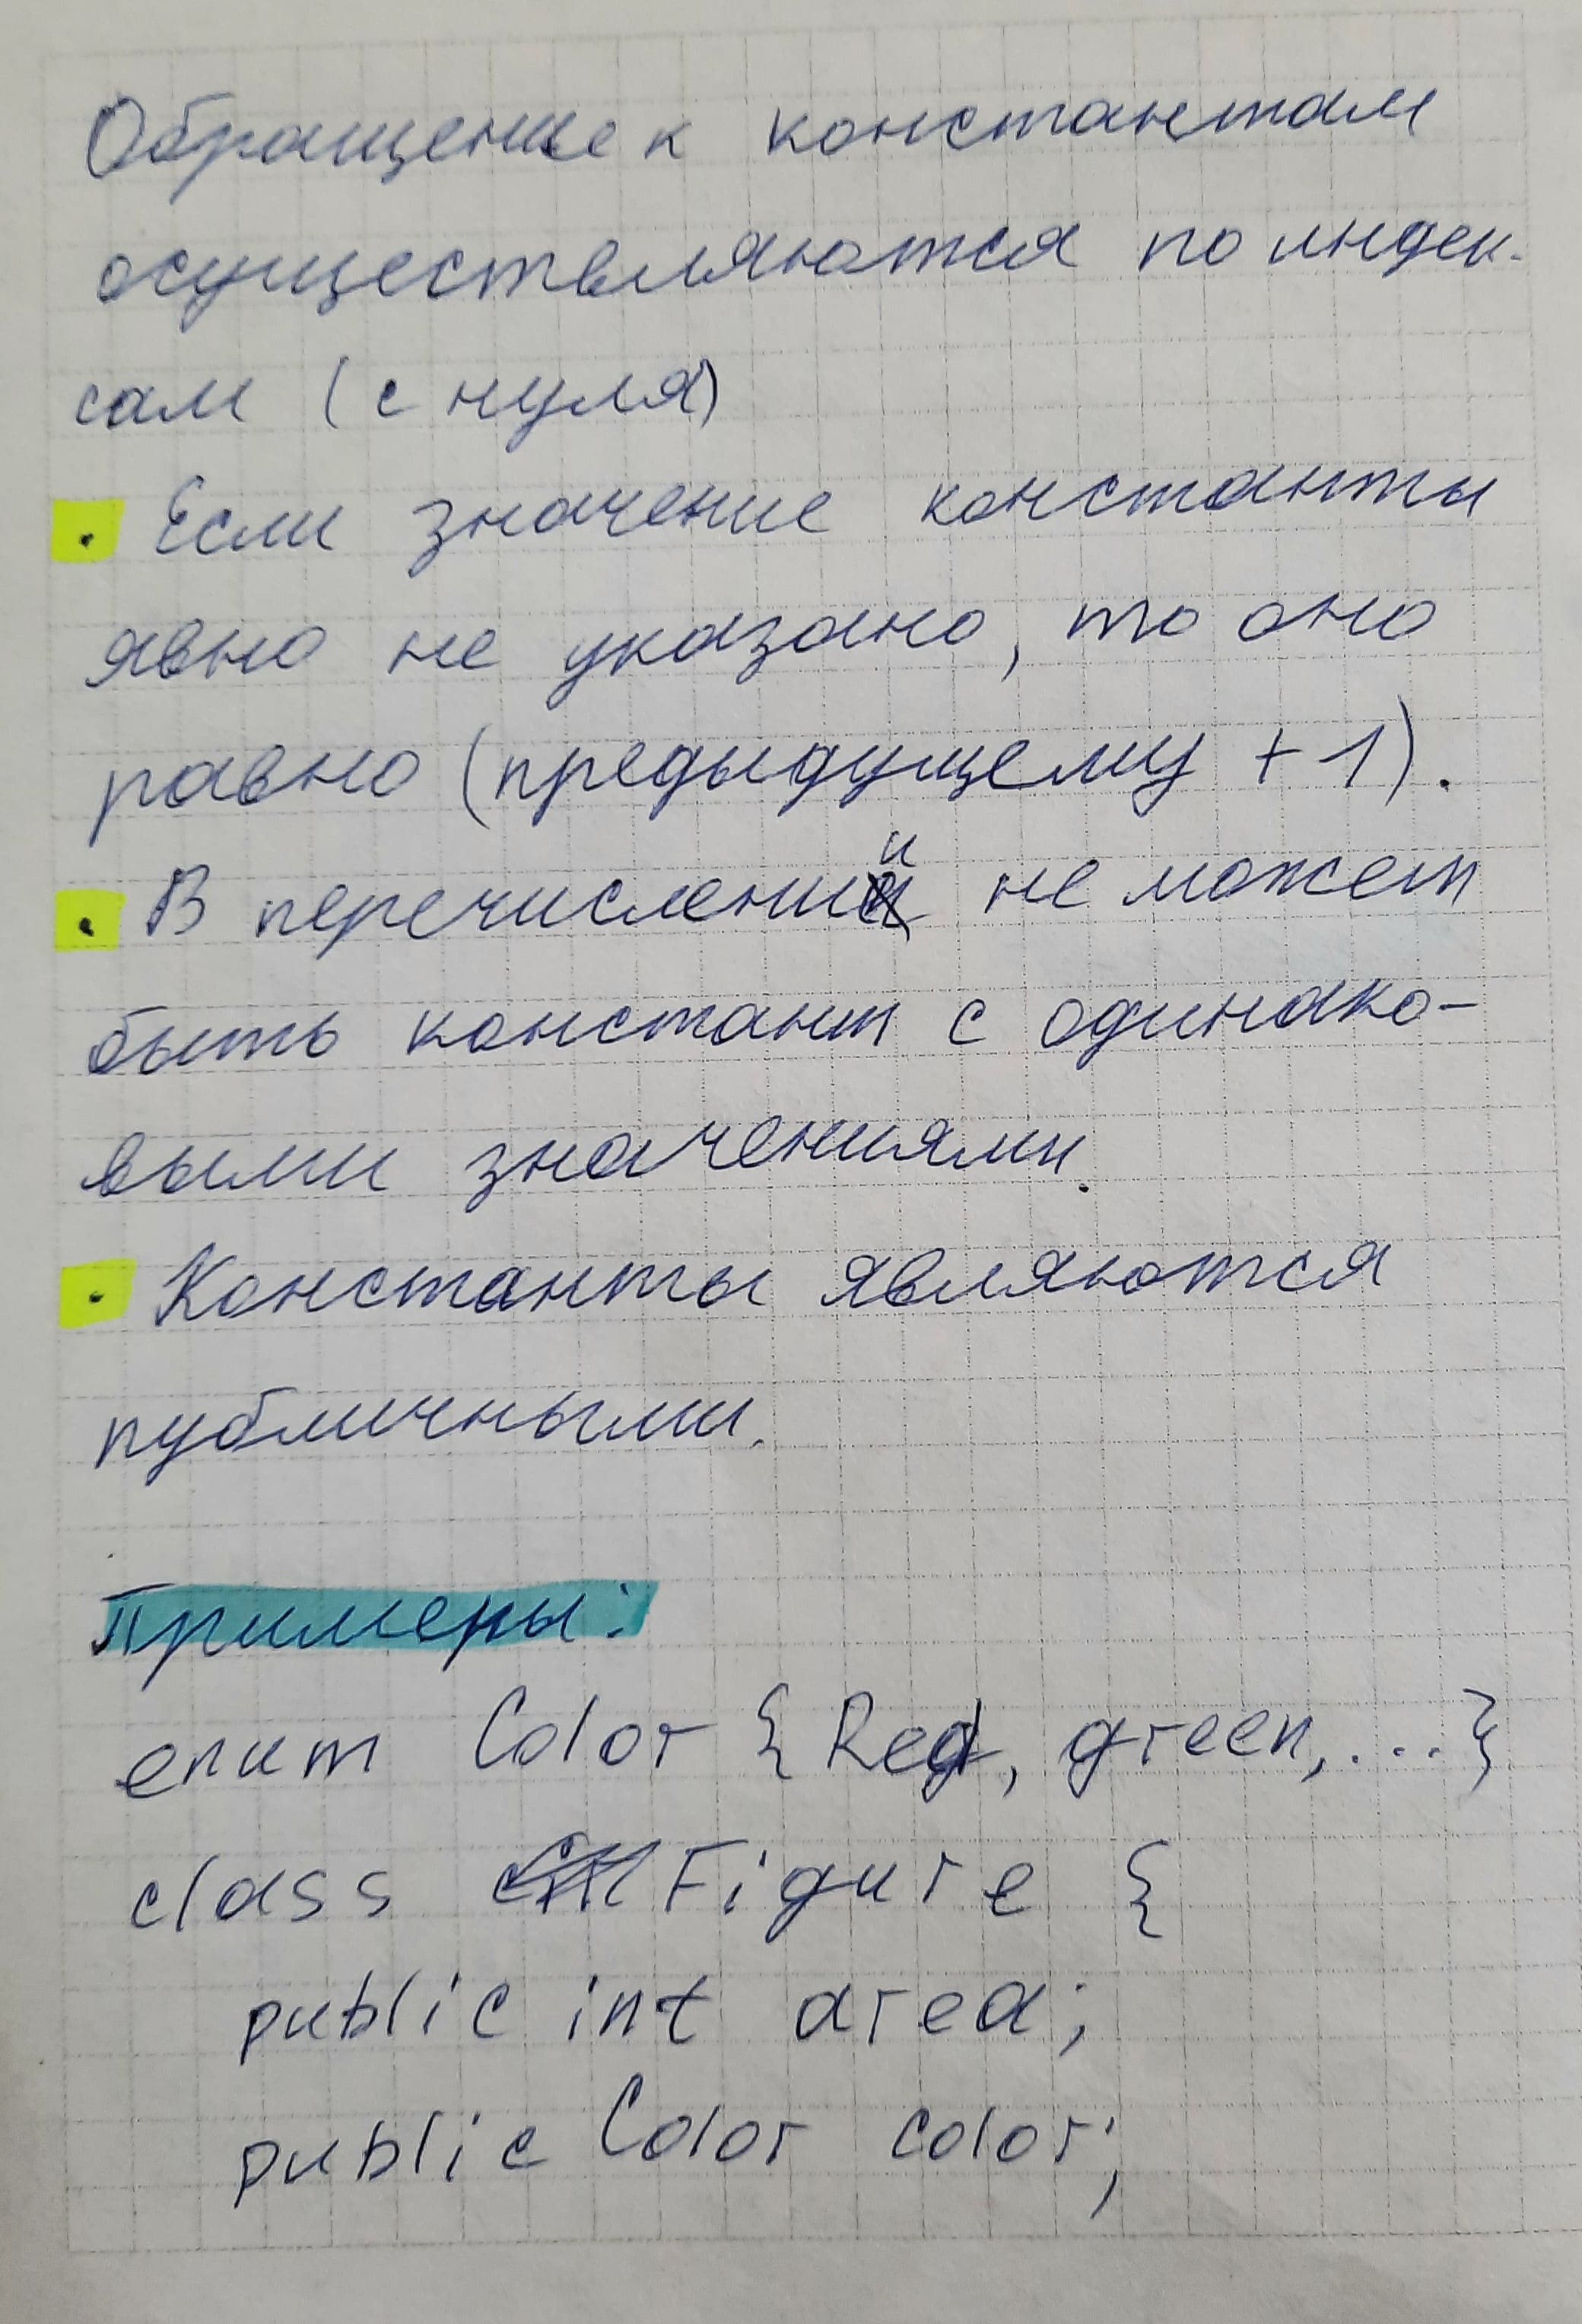 Обращение к константам
осуществляются по индек-
сам (с нуля)
. Если значение константы
явно не указано, то оно
равно (предыдущему + 1).
. В перечислении не может
быть констант с одинако-
выми значениями.
. Константы являются
публичными.
Примеры:
enum Color { Red, green, .... }
class Figure {
public int area;
public Color color;